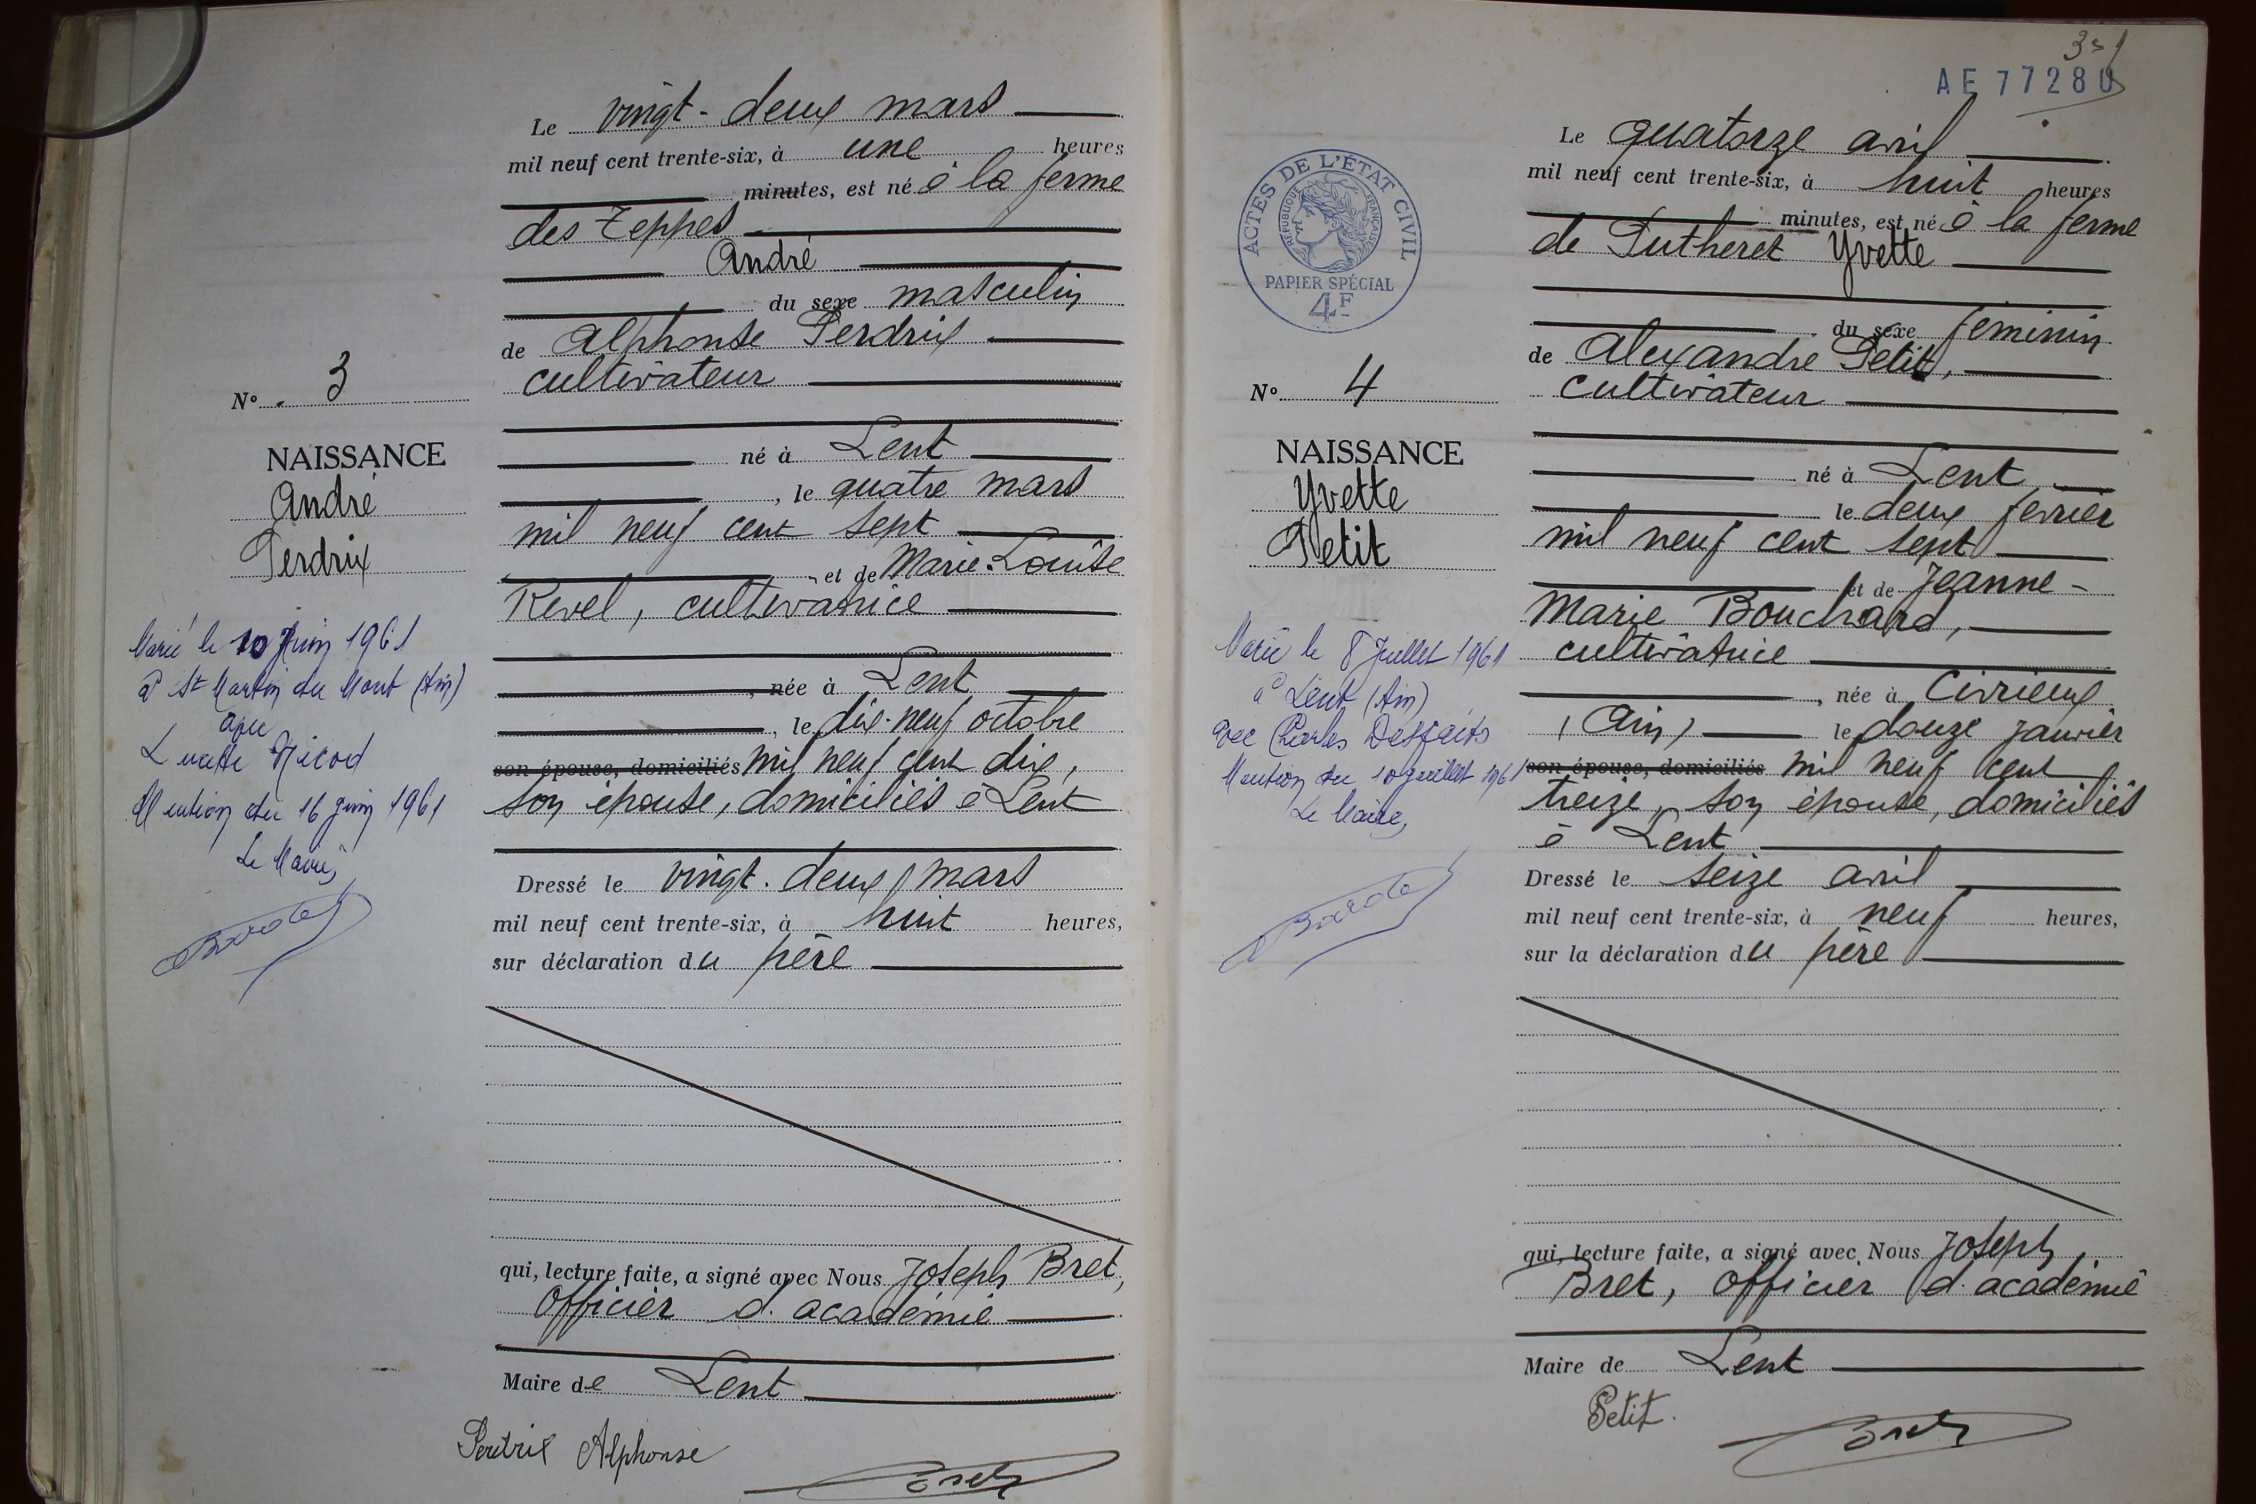 Le vingt-deux mars
mil neuf cent trente-six, à une heures
minutes, est né à la ferme
des Teppes
André
du sexe masculin
de Alphonse Perdrix
cultivateur
né à Lent
, le quatre mars
mil neuf cent sept
et de Marie-Louise
Revel, cultivatrice
, née à Lent
, le dix-neuf octobre
son épouse, domiciliés mil neuf cent dix,
son épouse, domiciliés à Lent
Dressé le vingt-deux mars
mil neuf cent trente-six, à huit heures,
sur déclaration du père
qui, lecture faite, a signé avec Nous Joseph Bret,
Officier d'académie
Maire de Lent
Perdrix Alphonse
Bret
N° 3
NAISSANCE
André
Perdrix
Marié le 10 Juin 1961
à St Martin du Mont (Ain)
avec
Lucette Nicod
Mention du 16 juin 1961
Le Maire,
351
AE 77280
ACTES DE L'ÉTAT CIVIL
RÉPUBLIQUE FRANÇAISE
PAPIER SPÉCIAL
4F
Le quatorze avril
mil neuf cent trente-six, à huit heures
minutes, est né à la ferme
de Lutheret Yvette
du sexe féminin
de Alexandre Petit,
cultivateur
né à Lent
le deux février
mil neuf cent sept
et de Jeanne-
Marie Bouchard,
cultivatrice
, née à Civrieux
(Ain) le douze janvier
son épouse, domiciliés mil neuf cent
treize, son épouse, domiciliés
à Lent
Dressé le seize avril
mil neuf cent trente-six, à neuf heures,
sur la déclaration du père
qui, lecture faite, a signé avec Nous Joseph
Bret, Officier d'académie
Maire de Lent
Petit.
Bret
N° 4
NAISSANCE
Yvette
Petit
Marié le 8 Juillet 1961
à Lent (Ain)
avec Charles Desfaits
Mention du 10 juillet 1961
Le Maire,